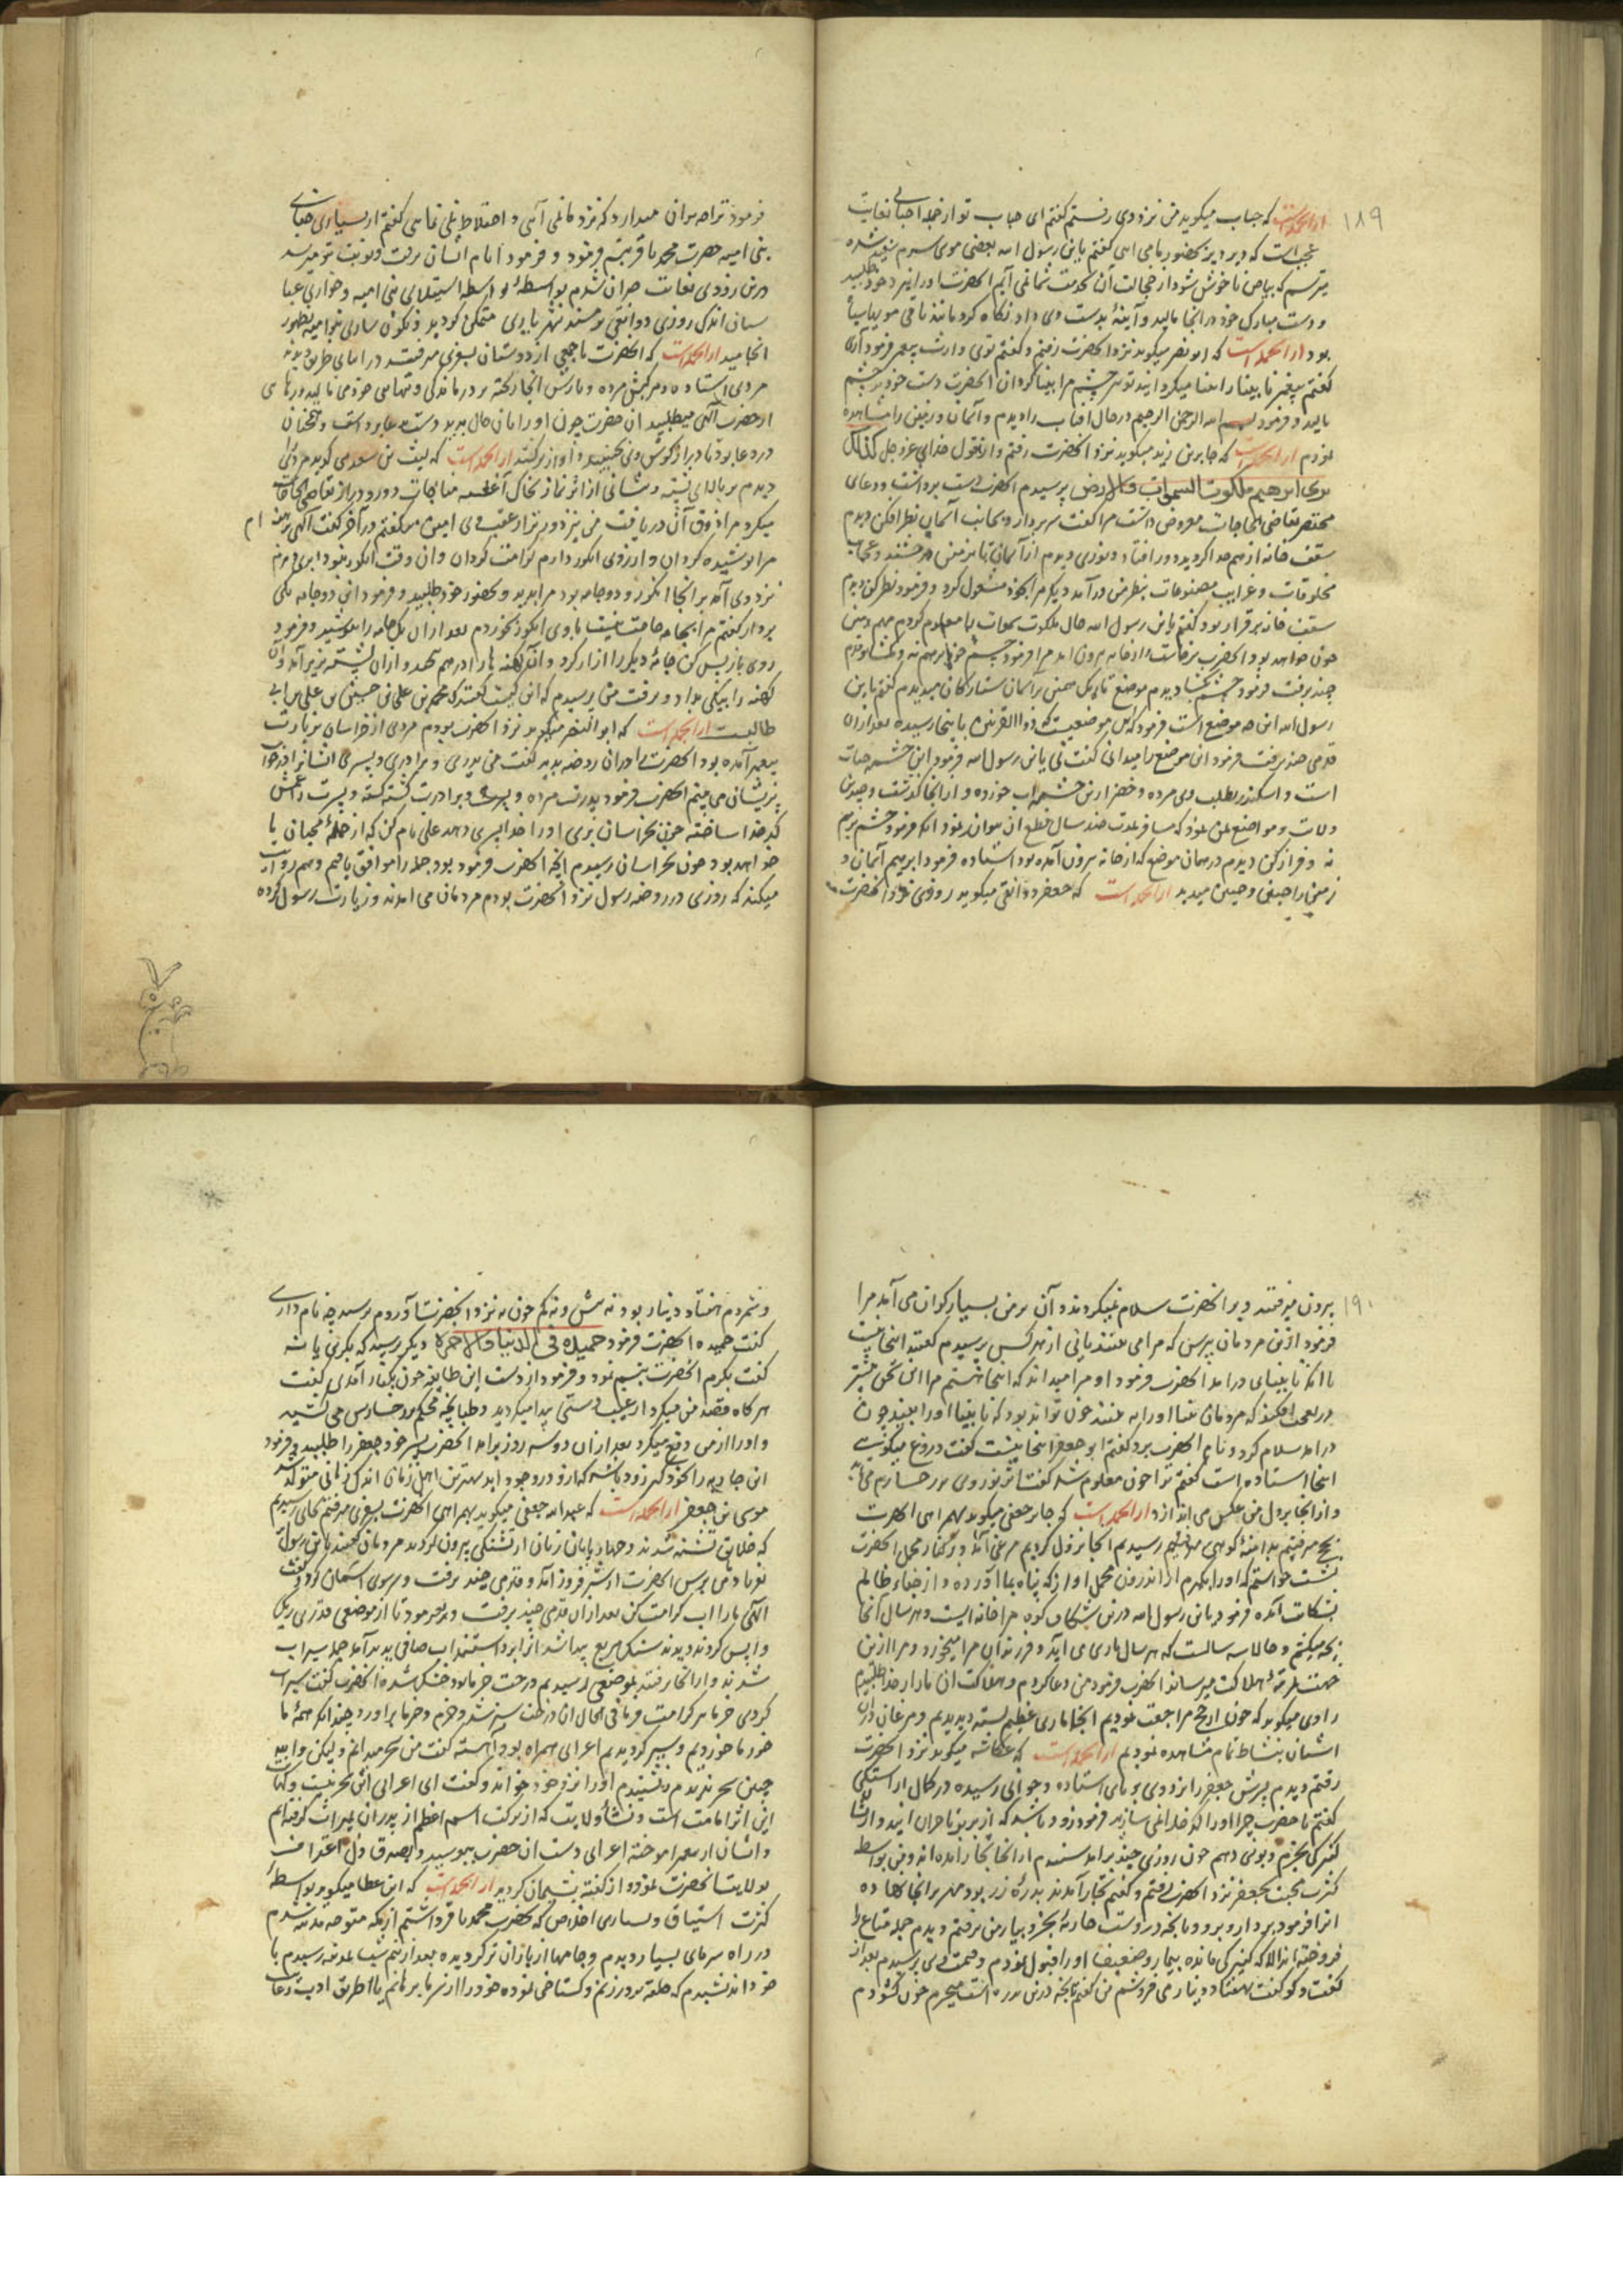 ۱۸۹
از انجمله است که حباب میگوید من نزد وی رفتم گفتم ای حباب تو از جمله احبائی بغایت
عجبست که دیر دیر بحضور ما می ایی گفتم یابن رسول الله بعضی موی سرم سفید شده
میترسم که بیاض ناخوش شود از خجالت آن بخدمت شما نمی آیم انحضرت او را نزد خود طلبید
و دست مبارک خود در انجا مالید و آینهٔ بدست وی داد نگاه کرد مانده باقی مو سیاه
بود از انجمله است که ابو نصر میگوید نزد انحضرت رفتم و گفتم توی وارث پیغمبر فرمود آری
گفتم پیغمبر نابینا را بینا میکرد اینه تو نیز چشم مرا بینا گردان انحضرت دست خود بر چشم
مالید و فرمود بسم الله الرحمن الرحیم در حال افتاب را دیدم و آسمان و زمین را مشاهده
نمودم از انجمله است که جابر بن زید میگوید نزد انحضرت رفتم و از قول خدای عز و جل کذلک
نری ابرهیم ملکوت السموات والارض پرسیدم انحضرت دست برداشت و دعای
مختصر بقاضی الحاجات معروض داشت مرا گفت سر بردار و بجانب آسمان نظر افکن دیدم
سقف خانه از هم جدا گردید و دور افتاد و نوری دیدم از آسمان تا بزمین درخشنده و عجایب
مخلوقات و غرایب مصنوعات بنظر من درآمد دیگر مرا بخود مشغول کرد و فرمود نظر کن دیدم
سقف خانه برقرار بود گفتم یابن رسول الله حال ملکوت سموات را معلوم کردم
چون خواهد بود انحضرت برخاست و از خانه بیرون امد مرا فرمود چشم خود بر هم نه
چند برفت فرمود چشم بگشا دیدم موضع تاریک
رسول الله این چه موضع است فرمود که این موضعیست که ذو القرنین باینجا رسیده بعد از ان
قدمی چند برفت فرمود این موضع را میدانی گفت نی یابن رسول الله فرمود این چشمه حیات
است و اسکندر بطلب وی مرده و خضر ازین چشمه اب خورده و از انجا گذشت و چندین
ولایت و مواضع بمن نمود که مسافر بمدت صد سال قطع ان نتوان نمود انکه فرمود چشم بر هم
نه و فراز کن دیدم در همان موضع که از خانه بیرون آمده بود استاده فرمود ابرهیم آسمان و
زمین را چنین و چنین میدید از انجمله است که جعفر دوانقی میگوید روزی نزد انحضرت
فرمود ترا چه بران میدارد که نزد ما نمی آئی و اختلاط بما نمی نمایی گفتم از بسیاری جفای
بنی امیه حضرت محمد باقر تبسم فرمود و فرمود ایام ایشان برفت و نوبت بتو میرسد
درین زودی بغایت حیران شدم بواسطهٔ استیلای بنی امیه و خواری عبا
سیان اندک روزی دوانقی بر مسند شهریاری متمکن گردید
انجامید از انجمله است که انحضرت با جمعی از دوستان بسفری میرفت در اثنای طریق دید که
مردی استاده و مرکبش مرده
از حضرت آلهی میطلبید ان حضرت چون او را بان حال بدید دست بدعا برداشت و همچنان
در دعا بود تا دراز گوش وی بجنبید و آواز بر کشید از انجمله است که لیث بن سعد میگوید مردی را
دیدم بر بالای نشسته و پیشانی از اثر نماز بخاک آغشته مناجات دور و دراز بقاضی الحاجات
مرا پوشیده گردان و ارزوی انکور دارم کرامت گردان و ان وقت انکور نبود ابری دیدم
نزد وی آمد بر انجا انکور و دو جامه بود مرا بدید و بحضور خود طلبید و فرمود ازین دو جامه یکی
بردار گفتم مرا بجامه حاجت نیست با وی انکور خوردم بعد از ان یک جامه را پوشید و فرمود
روی باز پس کن جامهٔ دیگر را ازار کرد
کهنه را بیکی بداد و برفت من پرسیدم که این کیست گفتند که محمد بن علی بن حسین بن علی بن ابی
طالبست از انجمله است که ابو النصر میگوید نزد انحضرت بودم مردی از خراسان بزیارت
خواهد بود چون بخراسان رسیدم انچه انحضرت فرمود بود جمله را موافق یافتم و هم روایت
میکند که روزی در روضه رسول نزد انحضرت بودم مردمان می امدند و زیارت رسول کرده
۱۹۰
بیرون میرفتند و بر انحضرت سلام نمیکردند و آن بر من بسیار گران می آمد مرا
فرمود ازین مردمان بپرس که مرا می بینند یا نی از هر کس پرسیدم گفتند اینجا نیست
تا انکه نابینای در امد انحضرت فرمود او مرا میداند که اینجا هستم مرا این سخن بیشتر
در تعجب افکند که مردمان بینا او را نه بینند چون تواند بود که نابینا او را ببیند چون
در امد سلام کرد و نام انحضرت برد گفتم ابو جعفر اینجا نیست گفت دروغ میگویی
اینجا استاده است گفتم ترا چون معلوم شد گفت اثر نور وی بر رخسارم می آید
و از انجا بر دل من عکس می اندازد از انجمله است که جابر جعفی میگوید بهمراهی انحضرت
بحج میرفتیم بدامنهٔ کوهی رسیدیم انجا نزول کردیم مرغی آمد و بر کنار محمل انحضرت
نشست خواستم که او را بگیرم از اندرون محمل اواز که پناه بما آورده و از جفاء ظالم
بشکایت آمده فرمود یابن رسول الله درین شکاف کوه مرا خانه ایست و هر سال انجا
بچه میکنم و حالا سه سالست که هر سال ماری می آید و فرزندان مرا میخورد و مرا ازین
جهت بمرتبهٔ هلاکت میرساند انحضرت فرمود من دعا کردم و هلاکت ان مار از خدا طلبیدم
راوی میگوید که چون از حج مراجعت نمودیم انجا ماری عظیم کشته دیدیم و مرغان دران
اشیان بنشاط تمام مشاهده نمودیم از انجمله است که عکاشه میگوید نزد انحضرت
رفتم دیدم پسرش جعفر را نزد وی بر پای استاده و بجوانی رسیده در کمال اراستگی
گفتم یا حضرت چرا او را کدخدا نمی سازید فرمود زود باشد که از بربر تاجران ایند و از ایشان
کنیزکی بخرم و بوی دهم چون روزی چند برامد شنیدم از انجا تجار امده اند و من بواسطه
کثرت محبت بجعفر نزد انحضرت رفتم و گفتم تجار آمدند بدرهٔ زر بود مهر بر انجا نهاده
انرا فرمود بردار و برو و بانچه دروست جاریهٔ بخر و بیار من برفتم و دیدم جمله متاع را
فروخته اند الا که کنیزکی مانده بیمار و ضعیف او را قبول نمودم و قیمت وی پرسیدم بعد از
گفت و گو گفت بهفتاد دینار می فروشم من گفتم بانچه درین بدره است میخرم چون گشودم
و شمردم هفتاد دینار بود نه بیش و نه کم چون به نزد انحضرت آوردم پرسید چه نام داری
گفت حمیده انحضرت فرمود حمیده فی الدنیا والاخره دیگر پرسید که بکری یا نه
گفت بکرم انحضرت تبسم نمود و فرمود از دست این طایفه چون بکنار آمدی گفت
هر گاه قصد من میکرد از غیب دستی پیدا میگردید و طبانچه محکم بر رخسارش می کشید
و او را از من دفع میکرد بعد از ان دو سه روز برامد انحضرت پسر خود جعفر را طلبید و فرمود
این جاریه را بخود گیر زود باشد که ازو در وجود اید بهترین اهل زمان اندک زمانی متولد شد
موسی بن جعفر از انجمله است که عبد الله جعفی میگوید بهمراهی انحضرت بسفری میرفتم بجای رسیدیم
که خلایق تشنه شدند و چهار پایان زبان از تشنگی بیرون کردند مردمان گفتند یابن رسول
آلهی ما را اب کرامت کن بعد از ان قدمی چند برفت و فرمود تا از موضعی قدری ریک
واپس کردند دیدند سنگ مربع پیدا شد انرا برداشتند اب صافی پدید آمد جمله سیراب
شدند و از انجا رفتند بموضعی رسیدیم درخت خرما بود خشک شده انحضرت گفت سیراب
کردی خرما نیز کرامت فرما فی الحال ان درخت سبز شد و خرم و خرما براورد چندانکه همهٔ ما
خرما خوردیم و سیر گردیدیم اعرابی همراه بود آهسته گفت من سحر میدانم ولیکن
چنین سحر ندیدم و نشنیدم او را نزد خود خواند و گفت ای اعرابی این سحر نیست
این اثر امامت است و نشأ ولایت که از برکت اسم اعظم از پدران بمیراث گرفته ایم
و ایشان از پیغمبر اموخته اعرابی دست ان حضرت ببوسید و بصدق دل اعتراف
بولایت انحضرت نموده از گفته پشیمان گردید از انجمله است که ابن عطا میگوید بواسطهٔ
کثرت اشتیاق و بسیاری اخلاص که بحضرت محمد باقر داشتم از مکه متوجه مدینه شدم
در راه سرمای بسیار دیدم و جامها از باران تر گردیده بعد از نیم شب بمدینه رسیدم با
خود اندیشیدم که حلقه بر در زنم و گستاخی نموده خود را از سرما برهانم یا از طریق ادب رعایت